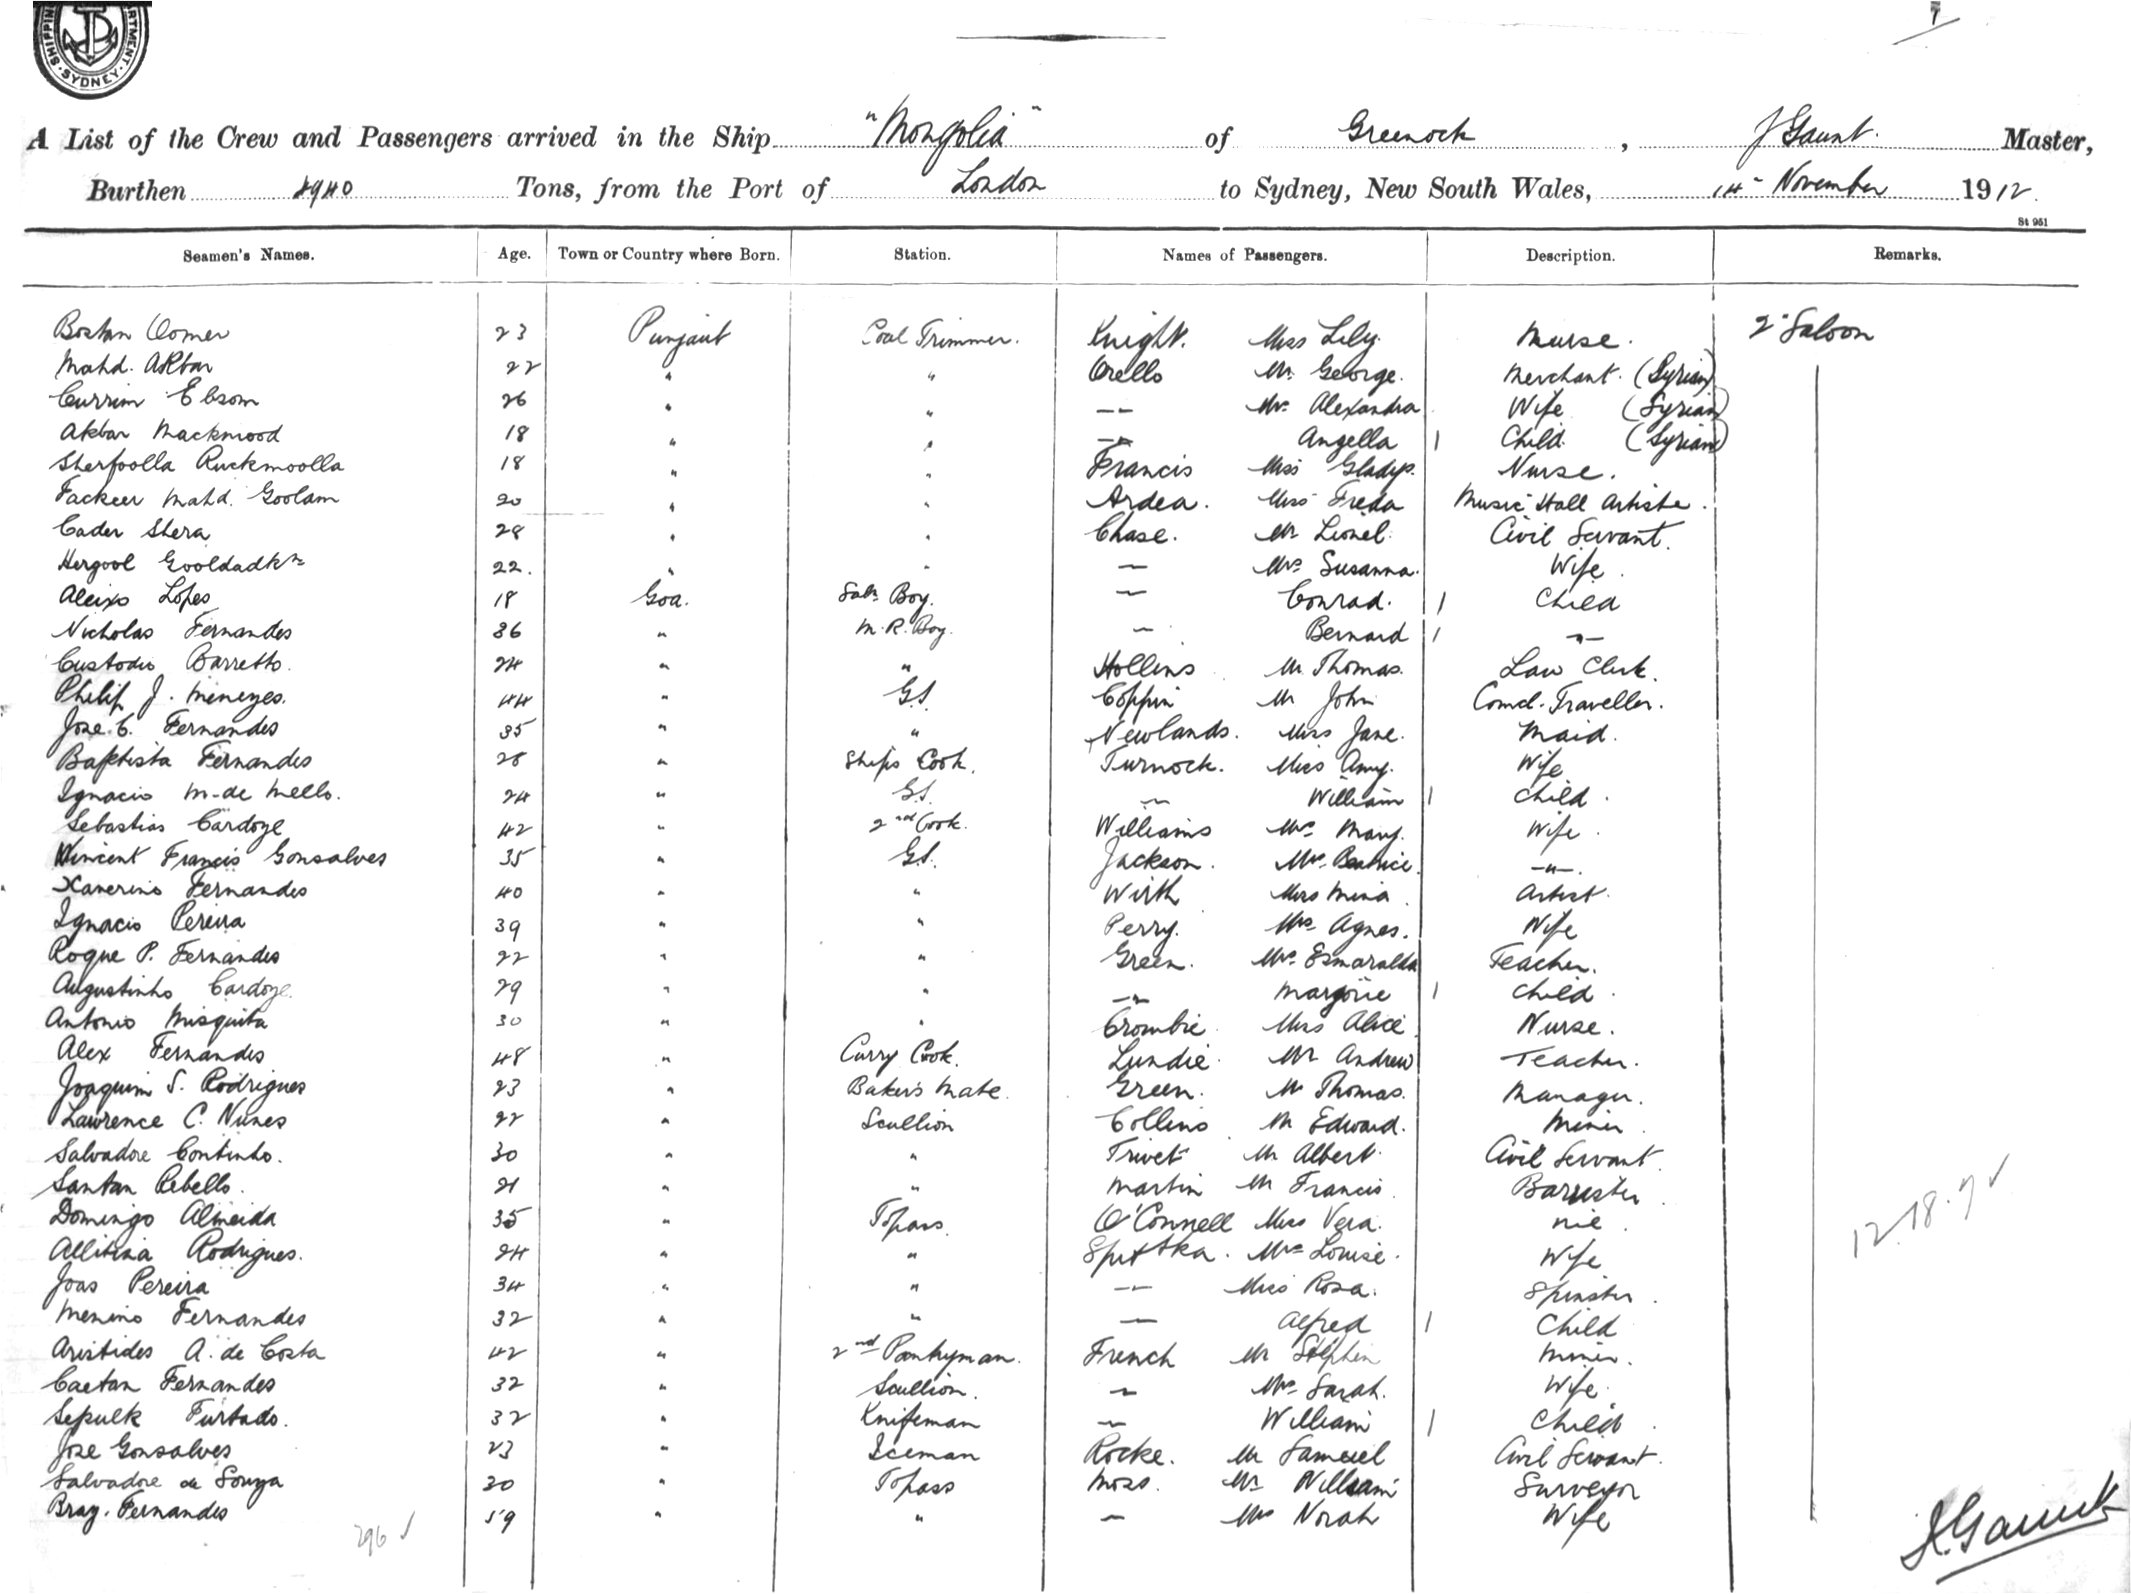 SHIPPING DEPARTMENT. SYDNEY.
A List of the Crew and Passengers arrived in the Ship "Mongolia" of Greenock, J Gaunt. Master,
Burthen 4940 Tons, from the Port of London to Sydney, New South Wales, 14 November 1912.
St 951
Seamen's Names. Age. Town or Country where Born. Station. Names of Passengers. Description. Remarks.
Bostan Oomer 23 Punjaub Coal Trimmer. Knight. Miss Lily. Nurse. 2 Saloon
Mahd. Akbar 22 " " Orello Mr George. Merchant. (Syrian)
Currim Ebsom 26 " " -"- Mrs Alexandra Wife (Syrian)
Akbar Mackmood 18 " " -"- Angella 1 Child (Syrian)
Sherfoolla Ruckmoolla 18 " " Francis Miss Gladys. Nurse.
Fackeer Mahd. Goolam 20 " " Ardea. Miss Freda Music Hall Artiste.
Cader Shera 28 " " Chase. Mr Lionel. Civil Servant.
Hergool 22. " " — Mrs Susanna. Wife.
Aleixo Lopes 18 Goa. Saln Boy. — Conrad. 1 Child
Nicholas Fernandes 36 " M.R. Boy. — Bernard 1 -"-
Custodio Barretto. 24 " " Hollins Mr Thomas. Law Clerk.
Philip J. Menezes. 44 " G.S. Coppin Mr John Comcl. Traveller.
Jose C. Fernandes 35 " " Newlands. Miss Jane. Maid.
Baptista Fernandes 28 " Ships Cook. Turnock. Miss Amy. Wife
Ignacio M. de Mello. 24 " G.S. — William 1 Child.
Sebastiao Cardoze 42 " 2nd Cook. Williams Mrs Mary. Wife.
Vincent Francis Gonsalves 35 " G.S. Jackson. Mrs Beatrice. -"-.
Xaverino Fernandes 40 " " Wirth Miss Mina. Artist.
Ignacio Pereira 39 " " Perry. Mrs Agnes. Wife
Roque P. Fernandes 22 " " Green. Mrs Esmaralda Teacher.
Augustinho Cardoze. 29 " " -"- Marjorie 1 Child.
Antonio Misquita 30 " " Crombie Miss Alice. Nurse.
Alex Fernandes 48 " Curry Cook. Lundie Mr Andrew Teacher.
Joaquim S. Rodrigues 23 " Baker's Mate. Green. Mr Thomas. Manager.
Lawrence C. Nunes 22 " Scullion Collins Mr Edward. Miner.
Salvadore Continho. 30 " " Trivet Mr Albert. Civil Servant.
Santan Rebello. 21 " " Martin Mr Francis. Barrister.
Domingo Almeida 35 " Topass. O'Connell Miss Vera. nil.
Rodrigues. 24 " " Mrs Louise. Wife
Joao Pereira 34 " " — Miss Rosa. Spinster.
Menino Fernandes 32 " " — Alfred 1 Child
Aristides A. de Costa 42 " 2nd Pantryman. French Mr Stephen Miner.
Caetan Fernandes 32 " Scullion. — Mrs Sarah. Wife.
Sepulk Furtado. 32 " Knifeman — William 1 Child.
Jose Gonsalves 23 " Iceman Rocke. Mr Samuel Civil Servant.
Salvadore de Souza 30 " Topass Moss. Mr William Surveyor
Braz. Fernandes 59 " " — Mrs Norah Wife
296
12.18.7
J. Gaunt